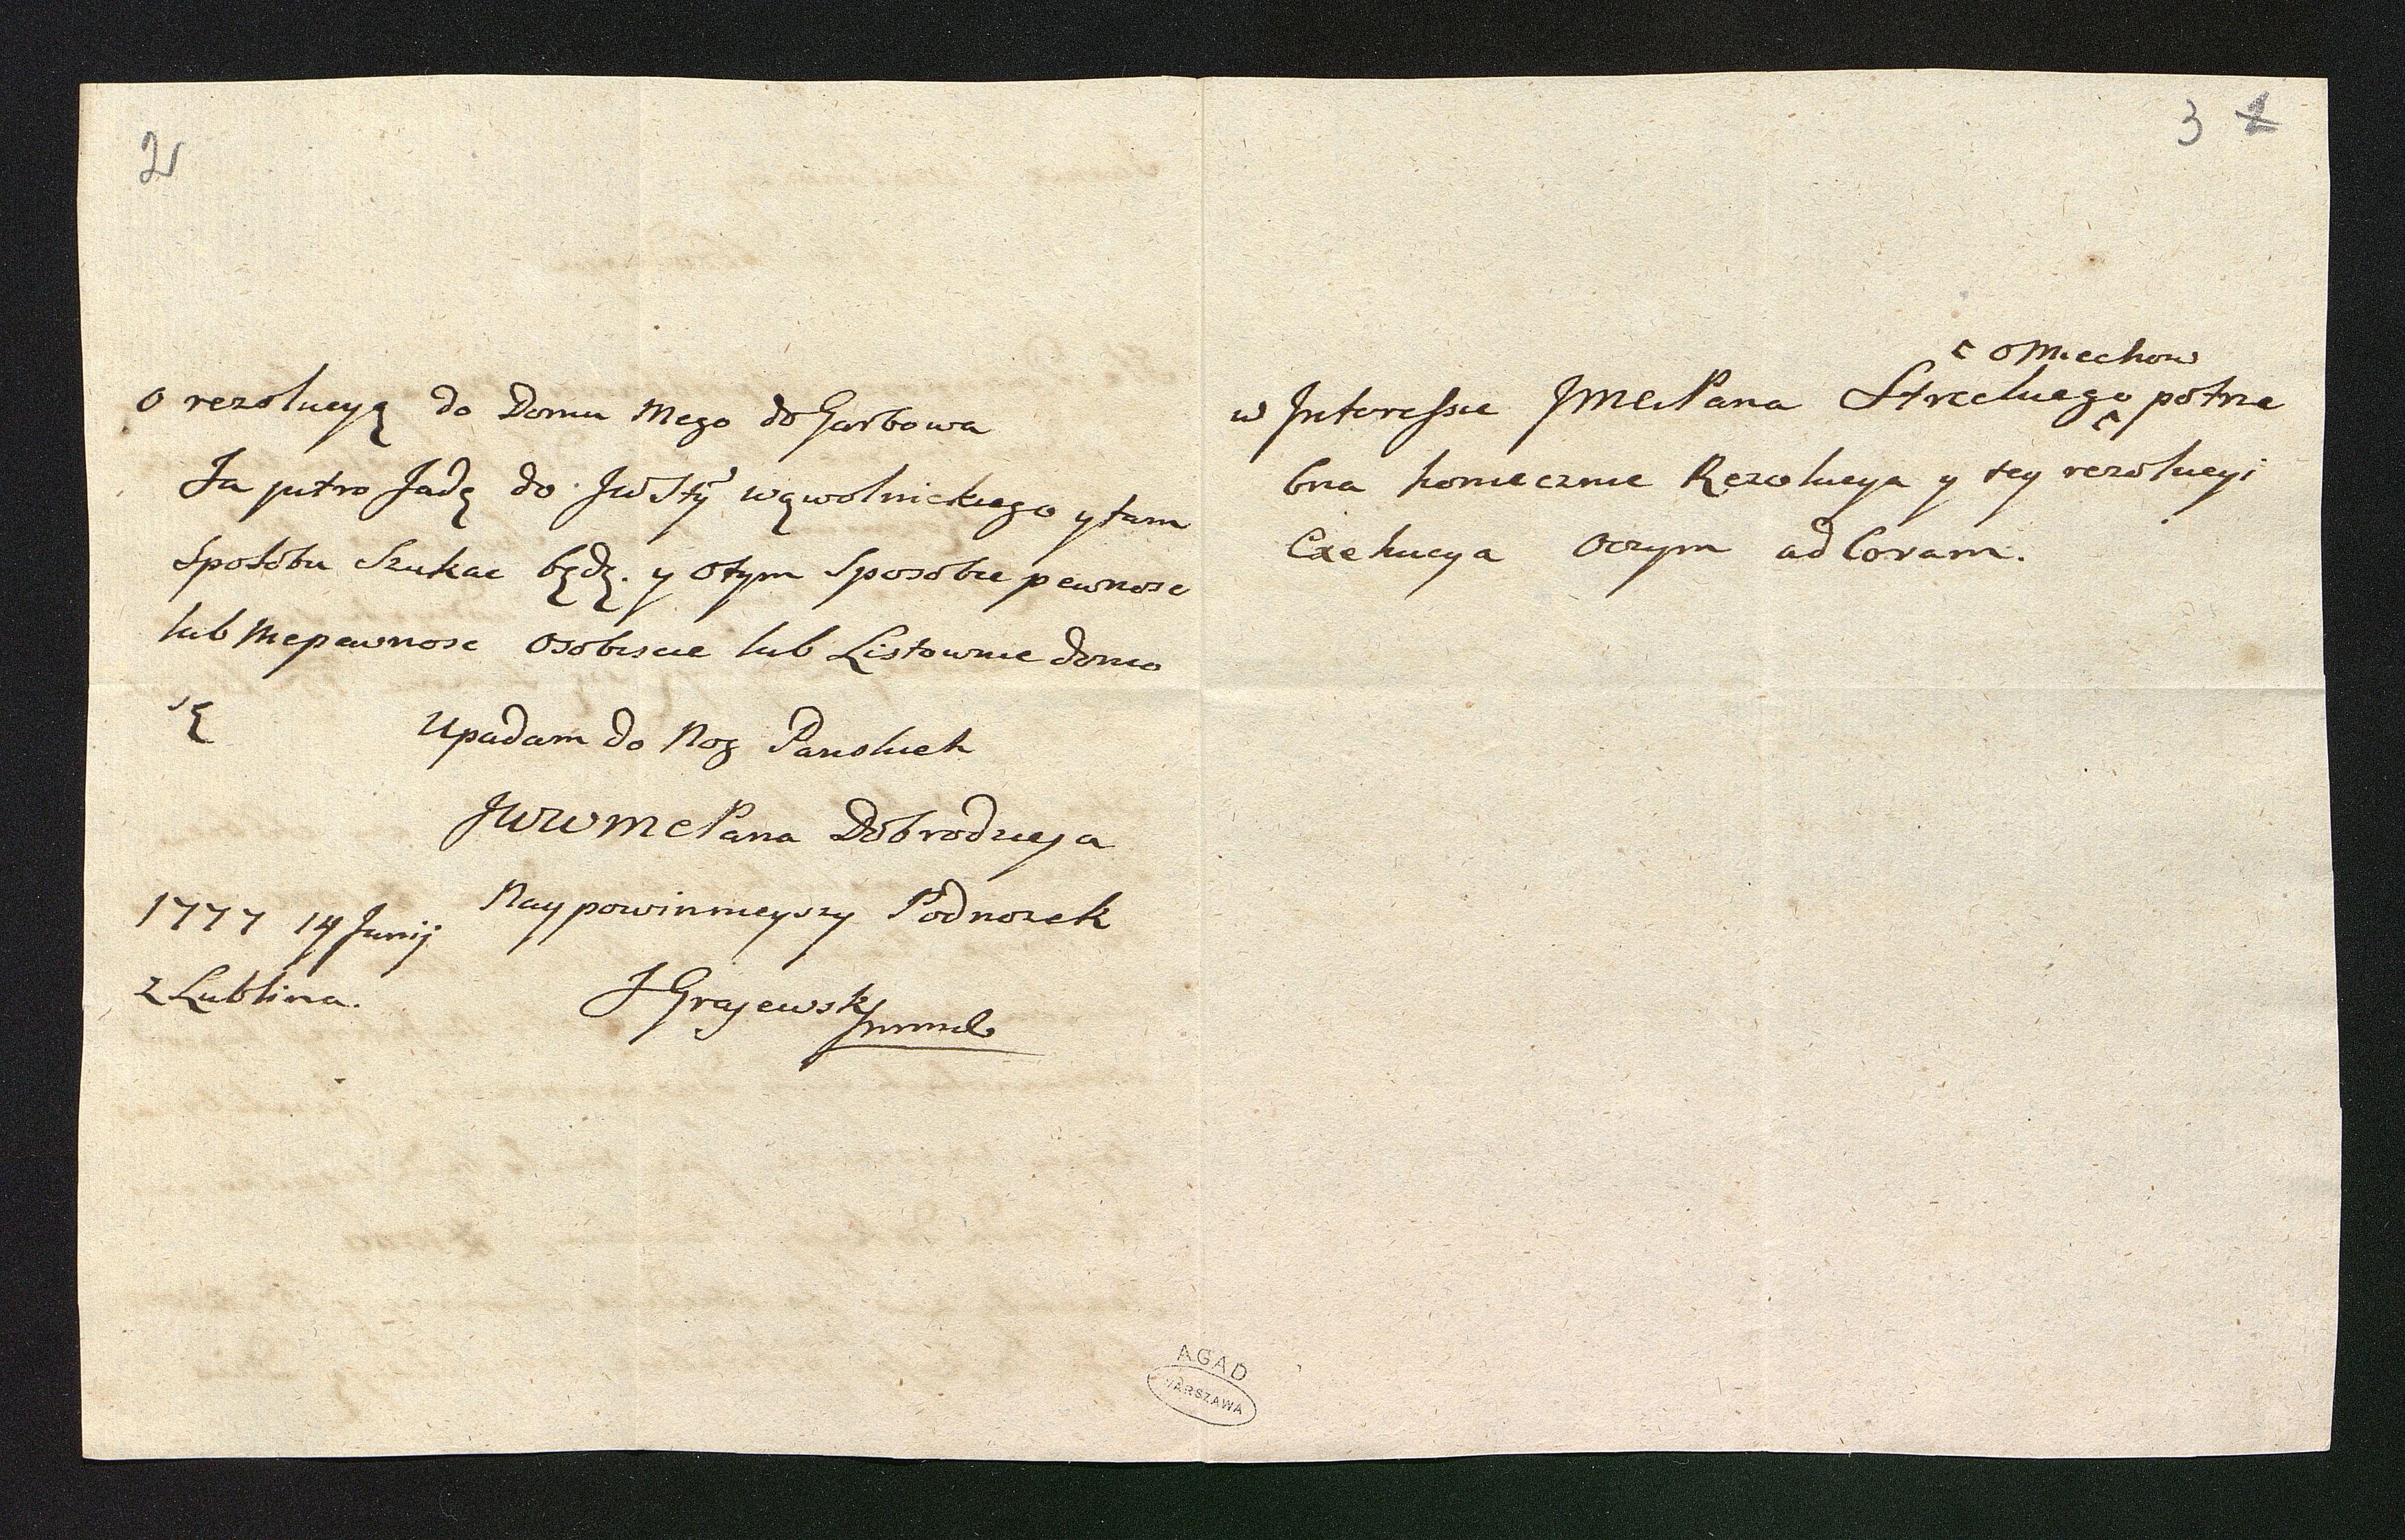 2
o rezolucyą do Domu Mego do Garbowa
Ja jutro Jadę do JW Stty Wąwolnickiego y tam
Sposobu Szukac będę. y otym Sposobie pewnosc
lub Niepewnosc Osobiscie lub Listownie donio
sę
Upadam do Nog Panskich
JWWMCPana Dobrodzieja
Naypowinnieyszy Podnozek
1777 14 Junij
z Lublina.
J Grajewski
3
o Miechow
w Interessie JMCiPana potrze
bna koniecznie Rezolucya y tey rezolucyi
Exekucya Oczym ad Coram.
AGAD
WARSZAWA